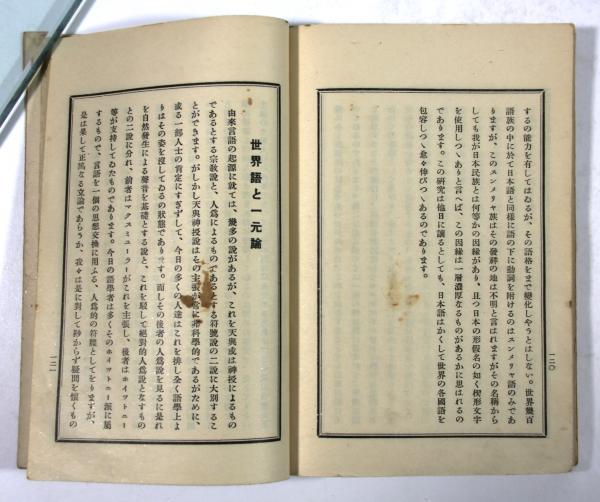 するの能力を有してはゐるが、その語格をまで變化しやうとはしない。世界幾百
語族の中に於て日本語と同樣に語の下に動詞を附けるのはスンメリヤ語のみであ
りますが、このスンメリヤ族はその發祥の地は不明と言はれますがその名稱から
しても我が日本民族とは何等かの因縁があり、且つ日本の形假名の如く楔形文字
を使用しつゝありと言へば、この因縁は一層濃厚なるものがあるかに思はれるの
であります。この研究は他日に讓るとしても、日本語はかくして世界の各國語を
包容しつゝ愈々伸びつゝあるのであります。
一二〇
世界語と一元論
由來言語の起源に就ては、幾多の說があるが、これを天與或は神授によるもの
であるとする宗敎說と、人爲によるものであるとする符號說の二說に大別するこ
とができます。がしかし天與神授說はその主張が餘に非科學的であるがために、
或る一部人士の肯定にすぎずして、今日の多くの人達はこれを排し全く語學上よ
りはその姿を沒してゐるの狀態であります。而しその後者の人爲說を見るに是れ
を自然發生による聲音を基礎とする說と、これを駁して絕對的人爲說となすもの
との二說に分れ、前者はマクスミューラーがこれを主張し、後者はホイツトニー
等が支持してゐたものであります。今日の語學者は多くそのホイツトニー派に屬
するもので、言語を一個の思想交換に用ふる、人爲的の符牒としてをりますが、
是は果して正鵠なる立論であらうか、我々は是に對して尠からず疑問を懷くもの
一二一